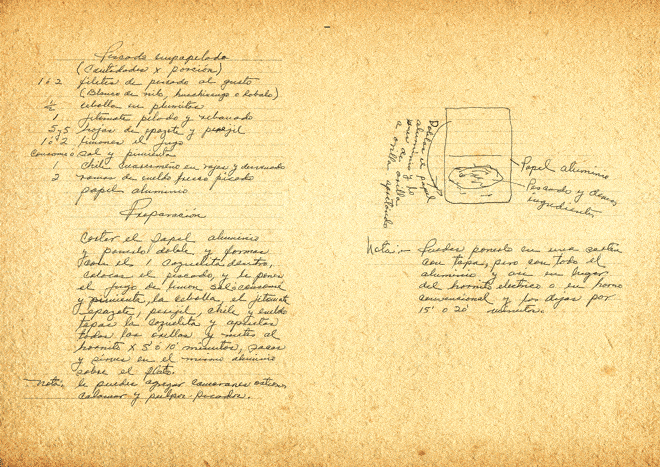 Pescado empapelado
(Cantidades x porción)
1 ó 2 filetes de pescado al gusto
(Blanco de nilo, huachinango o lobalo)
1/2 cebolla en plumitas
1 jitomate pelado y rebanado
5 y 5 hojas de epazote y perejil
1 ó 2 limones el jugo
consomé o sal y pimienta
1 chile cuaresmeño en rajas y desvenado
2 ramas de cueldo fresco picado
papel aluminio
Preparación
Cortar el papel aluminio
y ponerlo doble y formas
con el 1 cazuelita dentro,
colocas el pescado, y le pones
el jugo de limon sal o consomé
y pimienta, la cebolla, el jitomate
epazote, perejil, chile y cueldo
tapas la cazuelita y aprietas
todas las orillas y metes al
hornito x 5 ó 10 minutos, sacas
y sirves en el mismo aluminio
sobre el plato.
nota, le puedes agregar camarones ostiones
calamar y pulpo picados.
Doblas el papel
aluminio y lo
unes de orilla
a orilla apretando
Papel aluminio
Pescado y demas
ingredientes
Nota:- Puedes ponerlo en una
con tapa, pero con todo el
aluminio y asi en lugar
del hornito electrico o en horno
convencional y los dejas por
15' ó 20' minutos.